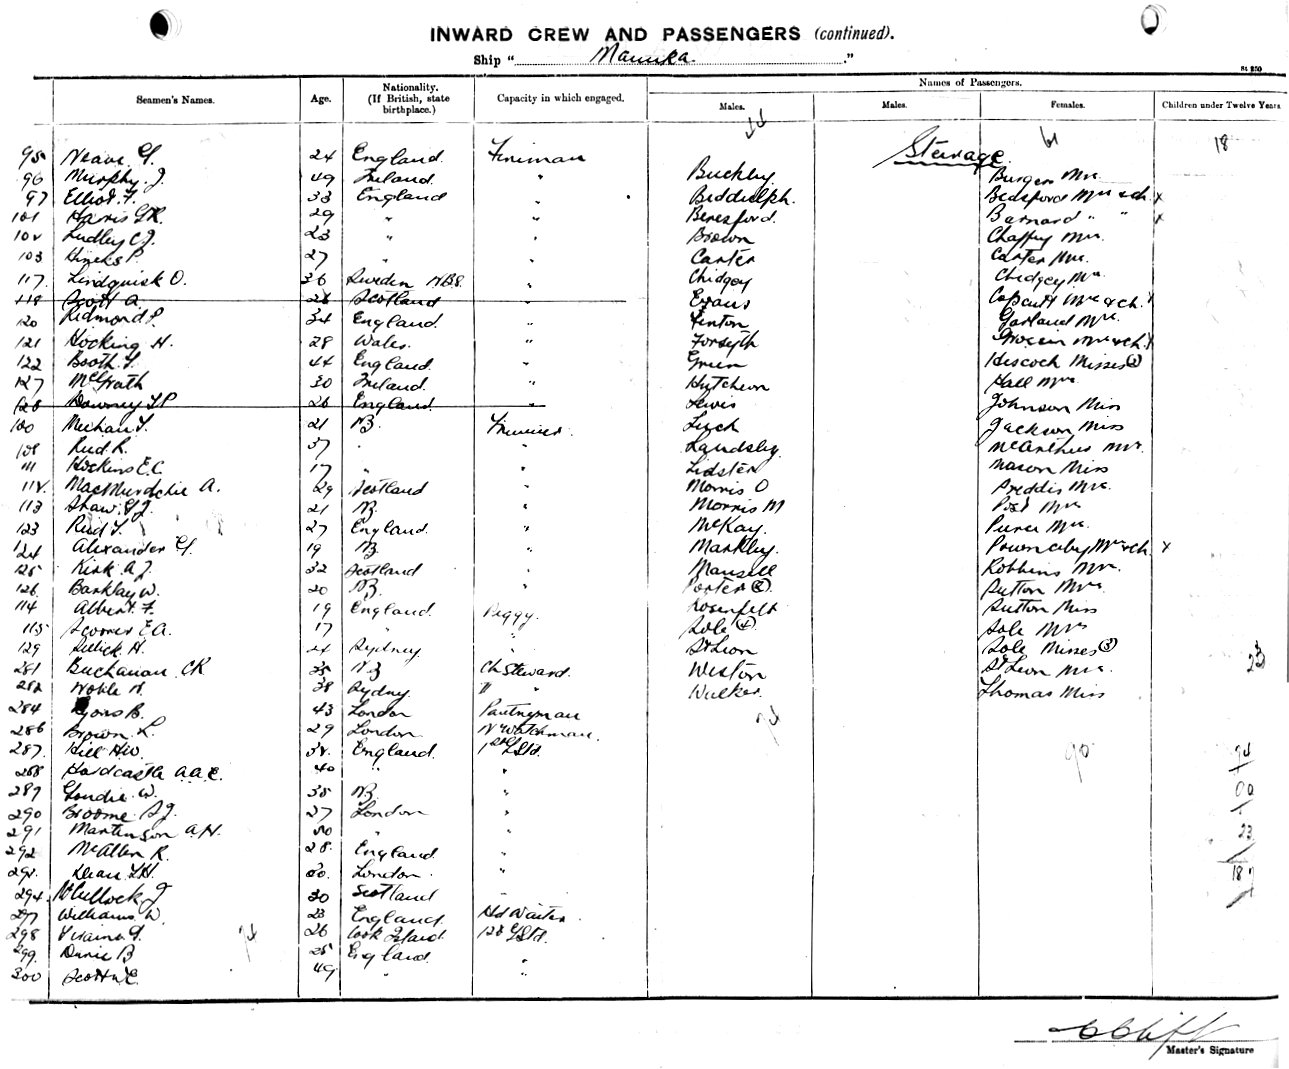 INWARD CREW AND PASSENGERS (continued).
Ship " Manuka. "
St 250
Seamen's Names. Age. Nationality. (If British, state birthplace.) Capacity in which engaged. Names of Passengers.
Males. Males. Females. Children under Twelve Years
18
Steerage.
95 Neave G. 24 England. Fireman Buckley Burgess Mrs
96 Murphy. J. 49 Ireland. " Biddulph. Bedsford Mrs & ch. x
97 Elliot. F. 33 England " Beresford. Barnard " " x
101 Harris G.R. 29 " " Brown Chaffey Mrs.
102 Ludley C.J. 23 " " Carter Carter Mrs.
103 Hincks P. 27 " " Chidgey Chidgey Mrs
117. Lindquisk O. 36 Sweden N.B.S. " Evans
118 Scott A. 26 Scotland " Fenton Garland Mrs.
120 Redmond P. 34 England. " Forsyth
121 Hocking H. 28 Wales. " Green Hiscock Misses (2)
122 Booth. F. 44 England. " Hutcheon Hall Mrs
127 McGrath 30 Ireland. " Lewis Johnson Miss
128 Downey T P 26 England. " Luck Jackson Miss
100 Meehan T. 21 NZ. Trimmer. Landsley. McArthur Mrs.
108 Reid R. 37 " Lidster Mason Miss
111 Hockins E.C. 17 " " Morris O Preddis Mrs.
112. MacMurdchie A. 29 Scotland " Morris M Post Mrs
113 Shaw G J. 21 NZ. " McKay. Pierce Mrs.
123 Reid F. 27 England. " Markley. Pownceby Mrs & ch. x
124 Alexander G. 19 NZ. " Mansell Robbins Mrs.
125 Kirk A J. 32 Scotland " Porter (2) Sutton Mrs.
126 Barklay W. 20 NZ. " Rosenfelt Sutton Miss
114 Albert F. 19 England. Peggy. Sole (4) Sole Mrs
115 Scorrer E.A. 17 " " St Leon Sole Misses (3)
129 Sellick H. 24 Sydney " Weston St Leon Mrs.
281 Buchanan CR 35 NZ Ch Steward. Walker. Thomas Miss
23
282 Noble H. 38 Sydney " "
284 Lyons B. 43 London Pantryman
286 Brown L. 29 London N Watchman.
287. Hill HW. 32. England. 1st Cl Std.
90
288 Hardcastle A.A.E. 40 " "
289 Goudie W. 35 NZ. "
290 Broome S J. 37 London "
291 Martinson A.H. 50 " "
23
292 McAllen R. 28. England. "
292. Dean F.H. 30. London. "
18
294. McCullock J 30 Scotland "
297 Williams W. 23 England Hd Waiter.
298 26 Cook Island. 1st Cl Std.
299 B 25 England. "
300 Scott E. 49 " "
Master's Signature